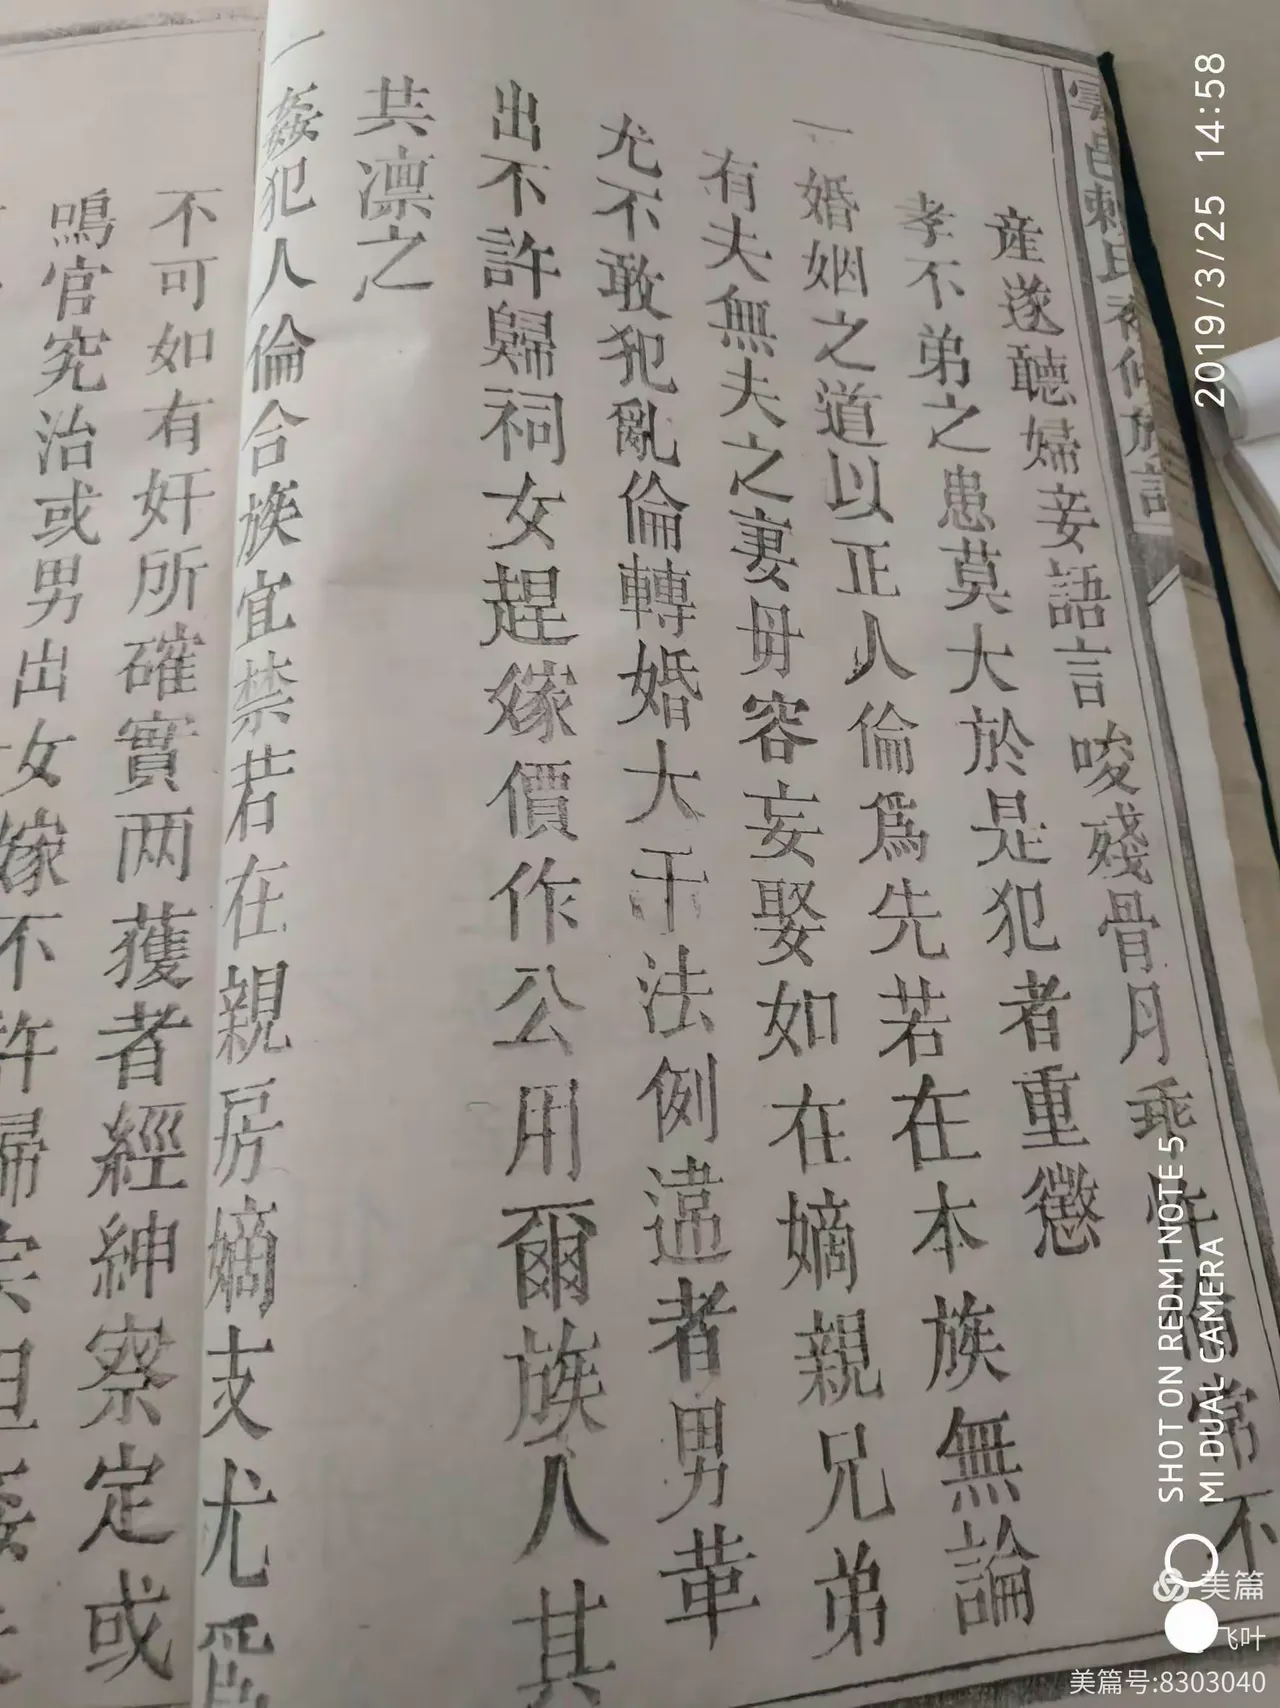 產遂聽婦妾語言唆殘骨月乖舛倫常不
孝不弟之患莫大於是犯者重懲
一婚姻之道以正人倫爲先若在本族無論
有夫無夫之妻毋容妄娶如在嫡親兄弟
尤不敢犯亂倫轉婚大干法例違者男革
出不許歸祠女趕嫁價作公用爾族人其
共凛之
一姦犯人倫合族宜禁若在親房嫡支尤爲
不可如有奸所確實两獲者經紳察定或
鳴官究治或男出女嫁不許歸宗
2019/3/25 14:58
SHOT ON REDMI NOTE 5
MI DUAL CAMERA
美篇
飞叶
美篇号:8303040